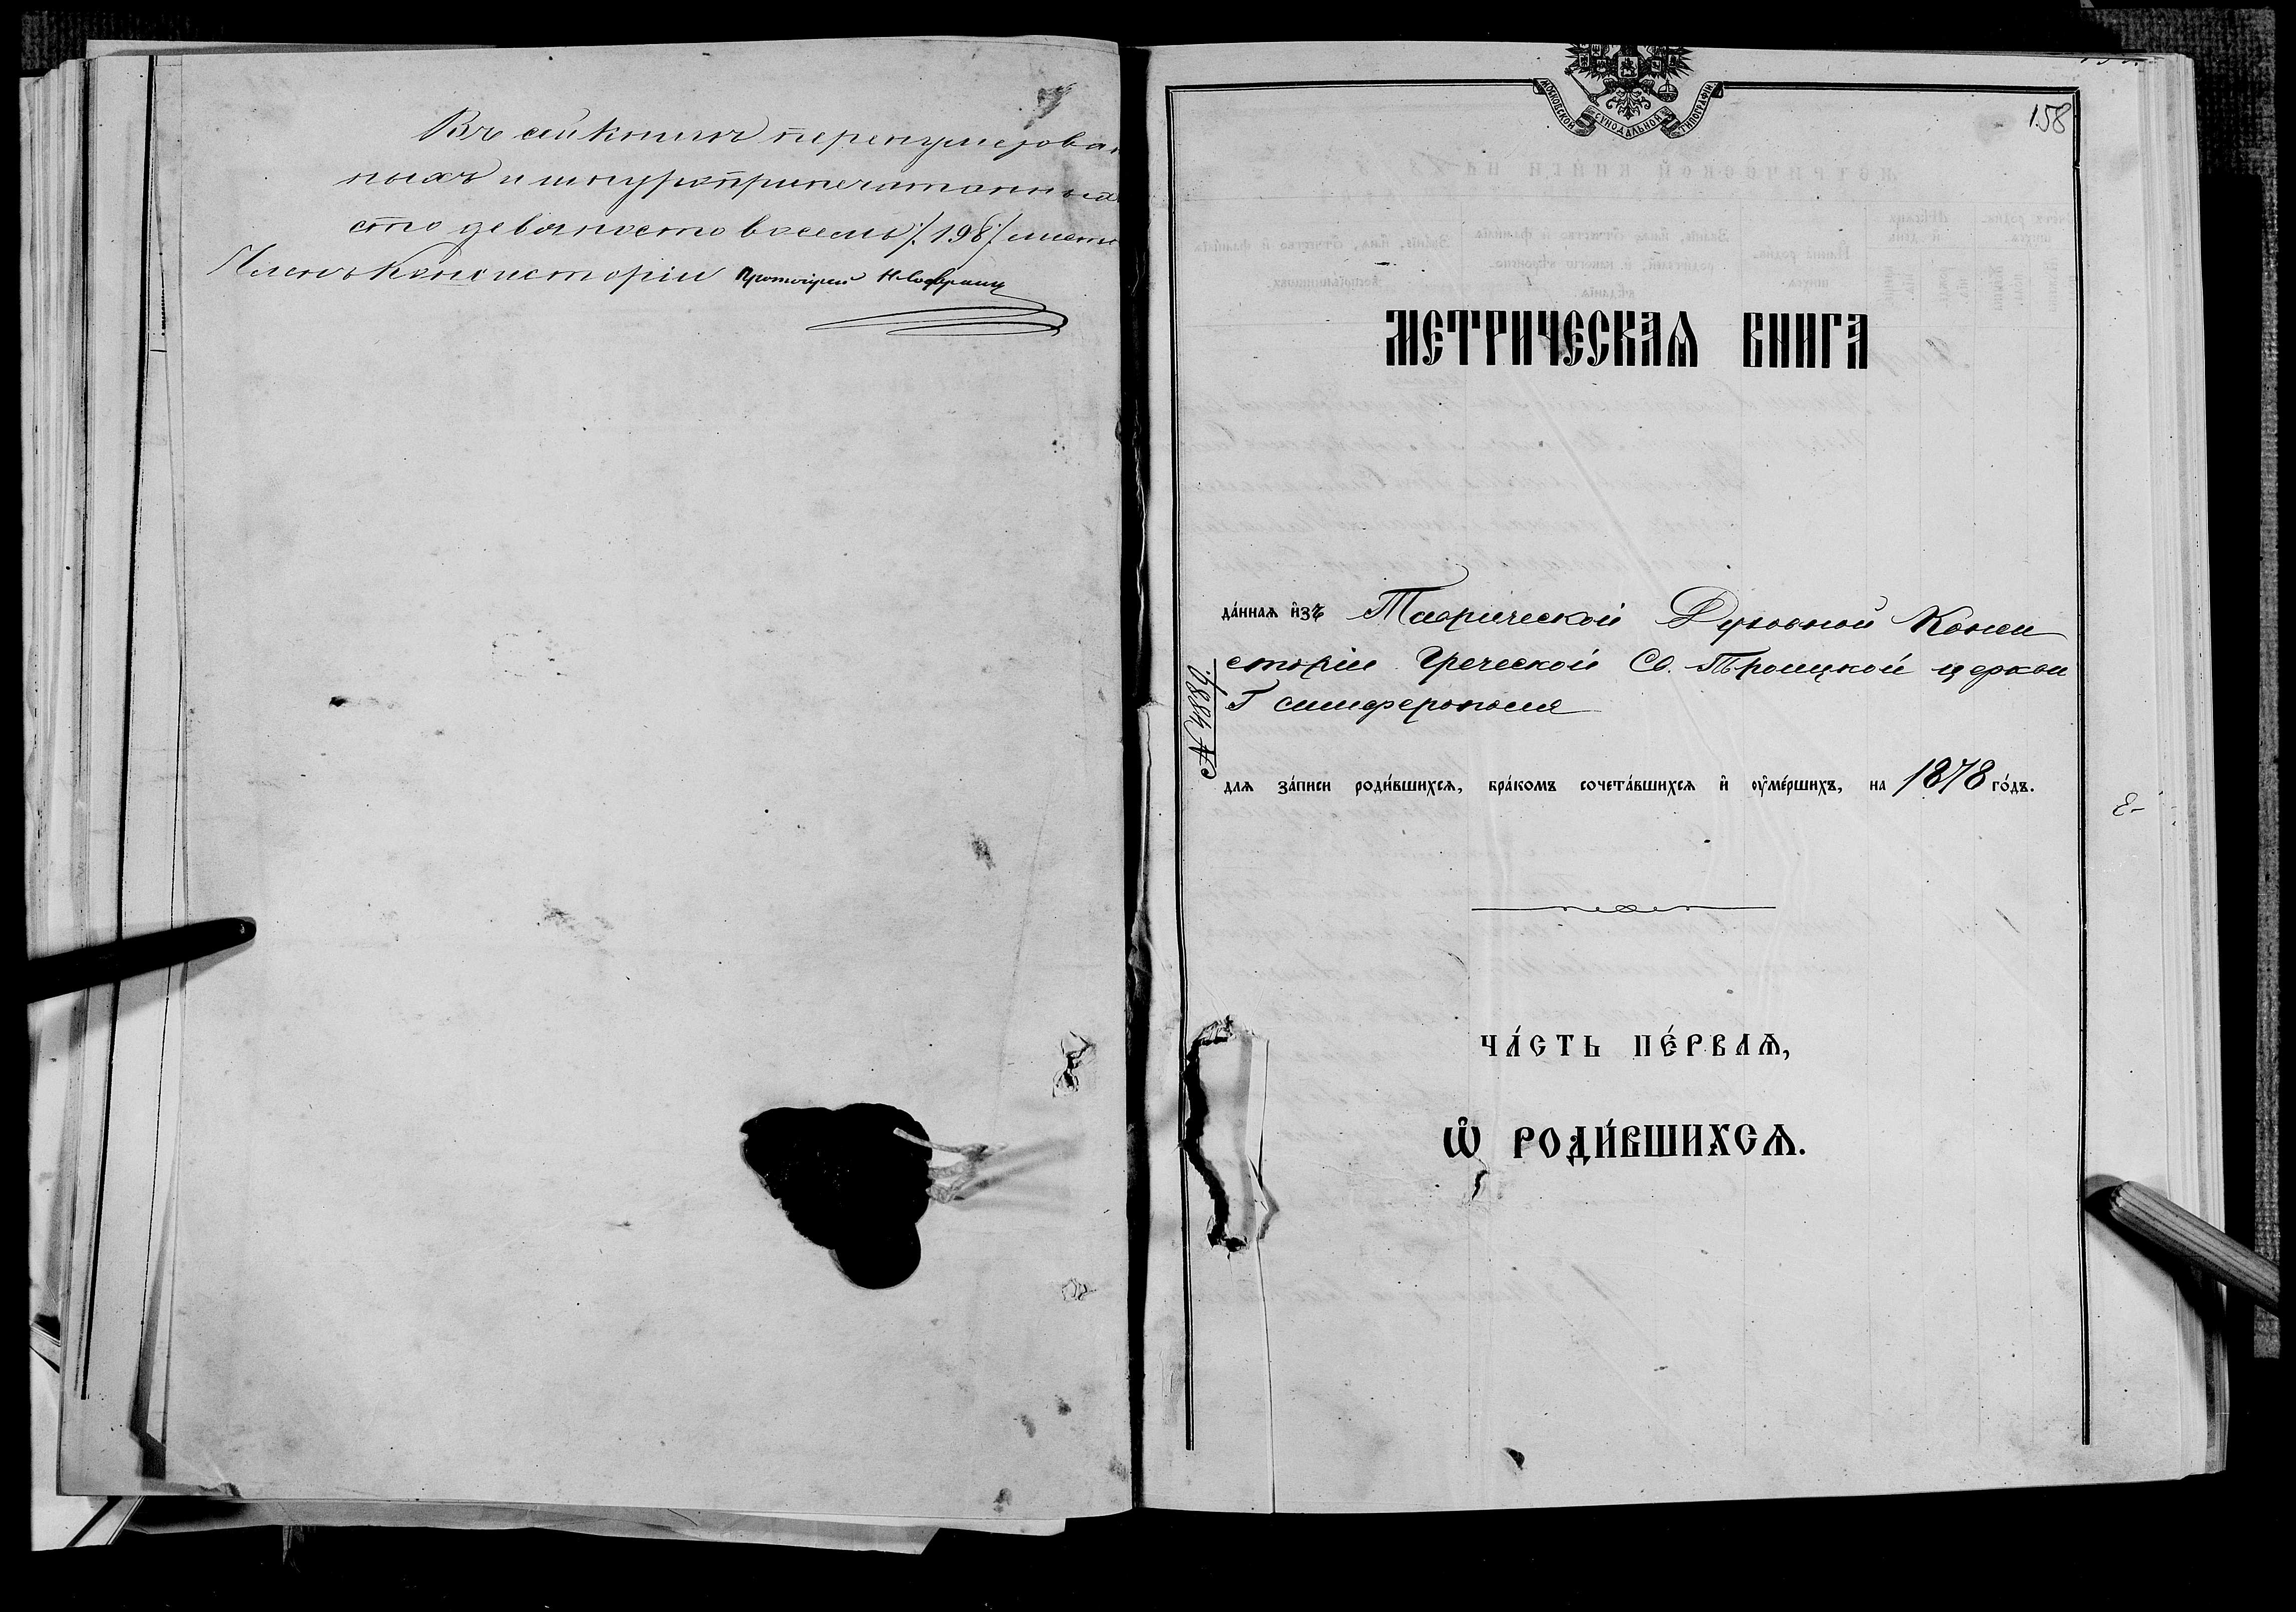 Въ сей книгѣ перенумерован
ныхъ и шнуроприпечатанныхъ
сто девяносто восемь /198/ листо
Членъ Консисторіи Протоіерей
МОСКОВСКОЙ СУНОДАЛЬНОЙ ТИПОГРАФІИ
158
МЕТРИЧЕСКАѦ КНИГА
да́ннаѧ и҆зъ Таврической Духовной Конси
сторіи Греческой Св. Троицкой церкви
Г Симферополя
№ 4889.
для за́писи роди́вшихсѧ, бра́комъ сочета́вшихсѧ и҆ оу҆ме́ршихъ, на 1878 го́дъ.
ЧА́СТЬ ПЕ́РВАѦ,
Ѡ҆ РОДИ́ВШИХСѦ.